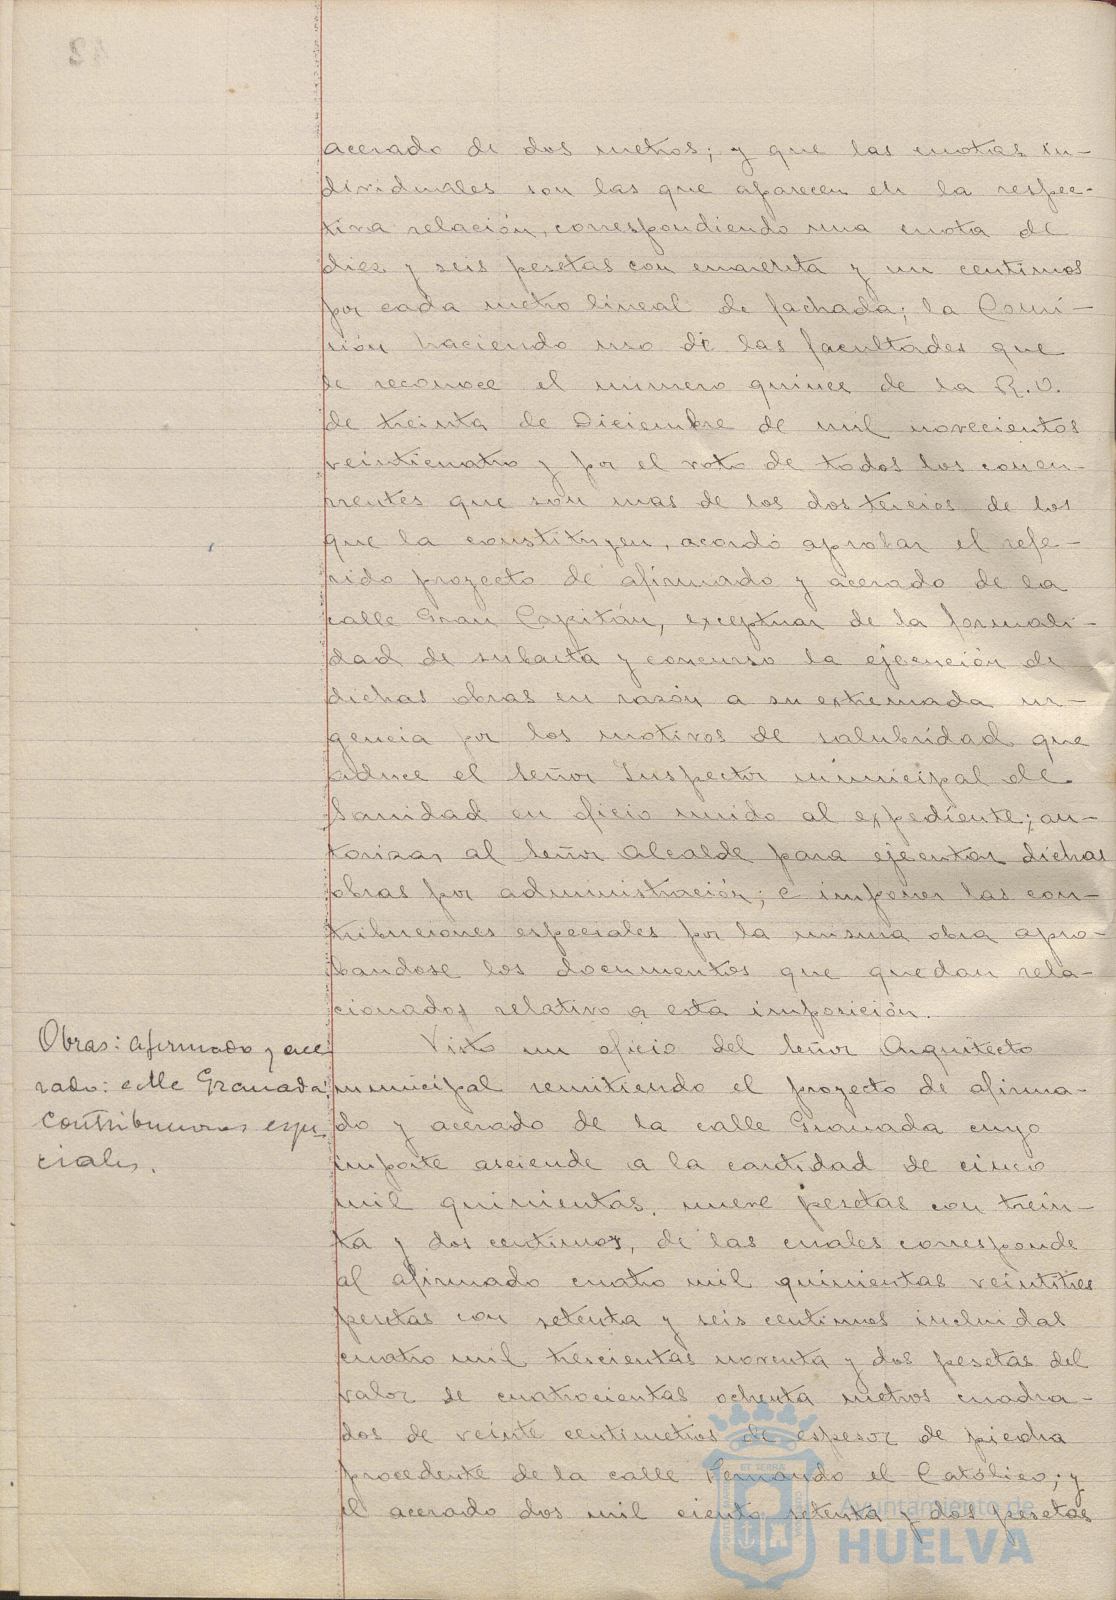 acerado de dos metros; y que las cuotas in-
dividuales son las que aparecen en la respec-
tiva relación, correspondiendo una cuota de
diez y seis pesetas con cuarenta y un centimos
por cada metro lineal de fachada; la Comi-
sión haciendo uso de las facultades que
le reconoce el número quince de la R.O.
de treinta de Diciembre de mil novecientos
veinticuatro y por el voto de todos los concu-
rrentes que son mas de los dos tercios de los
que la constituyen, acordó aprobar el refe-
rido proyecto de afirmado y acerado de la
calle Gran Capitán, exceptuar de la formali-
dad de subasta y concurso la ejecución de
dichas obras en razón a su extremada ur-
gencia por los motivos de salubridad que
aduce el Señor Inspector municipal de
Sanidad en oficio unido al expediente; au-
torizar al Señor Alcalde para ejecutar dichas
obras por administración; e imponer las con-
tribuciones especiales por la misma obra apro-
bandose los documentos que quedan rela-
cionados relativo a esta imposición.
Obras: afirmado y ace
rado: calle Granada,
contribuciones espe
ciales.
Visto un oficio del Señor Arquitecto
municipal remitiendo el proyecto de afirma-
do y acerado de la calle Granada cuyo
importe asciende a la cantidad de cinco
mil quinientas, nueve pesetas con trein-
ta y dos centimos, de las cuales corresponde
al afirmado cuatro mil quinientas veintitres
pesetas con setenta y seis centimos incluidas
cuatro mil trescientas noventa y dos pesetas del
valor de cuatrocientas ochenta metros cuadra-
dos de veinte centimetros de espesor de piedra
procedente de la calle Fernando el Católico; y
el acerado dos mil ciento setenta y dos pesetas
Ayuntamiento de
HUELVA